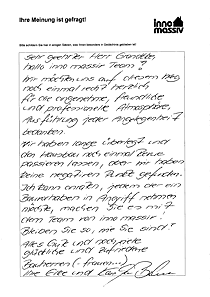 Ihre Meinung ist gefragt!
Inno
massiv
Sehr geehrter Herr
hallo inno massiv Team!
Wir möchten uns auf diesem Weg
noch einmal recht herzlich
für die angenehme, freundliche
und professionelle Atmosphäre,
Ausführung jeder Angelegenheit
bedanken.
Wir haben lange überlegt und
den Hausbau noch einmal Revue
passieren lassen, aber wir haben
keine negativen Punkte gefunden.
Ich kann anraten, jedem der ein
Bauvorhaben in Angriff nehmen
möchte, machen Sie es mit
dem Team von inno massiv!
Bleiben Sie so, wie Sie sind!
Alles Gute und noch viele
glückliche und zufriedene
Bauherren (frauen...)
Ihre Elke und